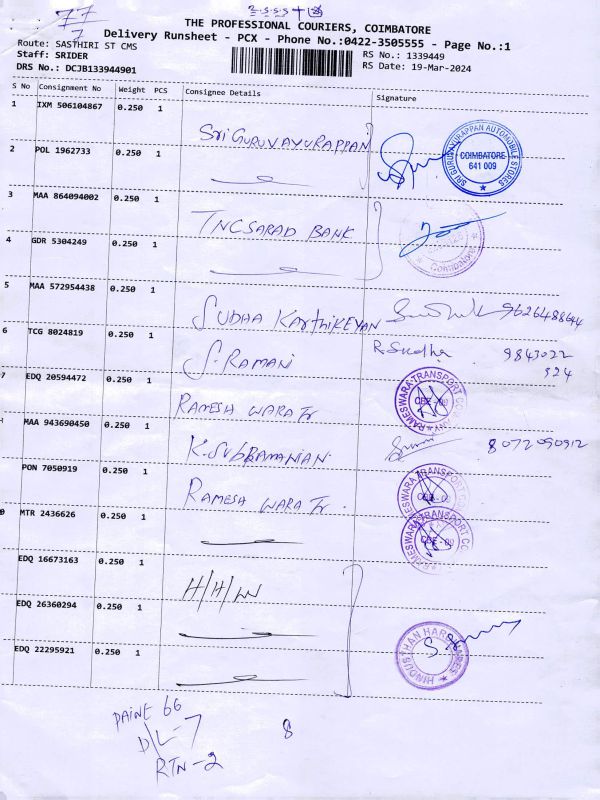 77
7
THE PROFESSIONAL COURIERS, COIMBATORE
Delivery Runsheet - PCX - Phone No.:0422-3505555 - Page No.:1
Route: SASTHIRI ST CMS
RS No.: 1339449
Staff: SRIDER
RS Date: 19-Mar-2024
DRS No.: DCJB133944901
S No Consignment No Weight PCS Consignee Details Signature
1 IXM 506104867 0.250 1
Sri GURUVAYURAPPAN
SRI GURUVAYURAPPAN AUTOMOBILE STORES
COIMBATORE
641 009
2 POL 1962733 0.250 1
3 MAA 864094002 0.250 1
TNCSARAD BANK
Coimbatore
4 GDR 5304249 0.250 1
5 MAA 572954438 0.250 1
SUDHA KARTHIKEYAN 9626488644
6 TCG 8024819 0.250 1
S. RAMAN R. Sudha 9843022
924
7 EDQ 20594472 0.250 1
RAMESH WARA Tr
RAMESWARA TRANSPORT COMPANY
MAA 943690450 0.250 1
K. SUBRAMANIAN 8072050912
PON 7050919 0.250 1
RAMESH WARA Tr.
RAMESWARA TRANSPORT CO
MTR 2436626 0.250 1
RAMESWARA TRANSPORT CO
EDQ 16673163 0.250 1
H/H/W
EDQ 26360294 0.250 1
HINDUSTHAN HARDWARES
EDQ 22295921 0.250 1
66
DL-7
8
RTN-2